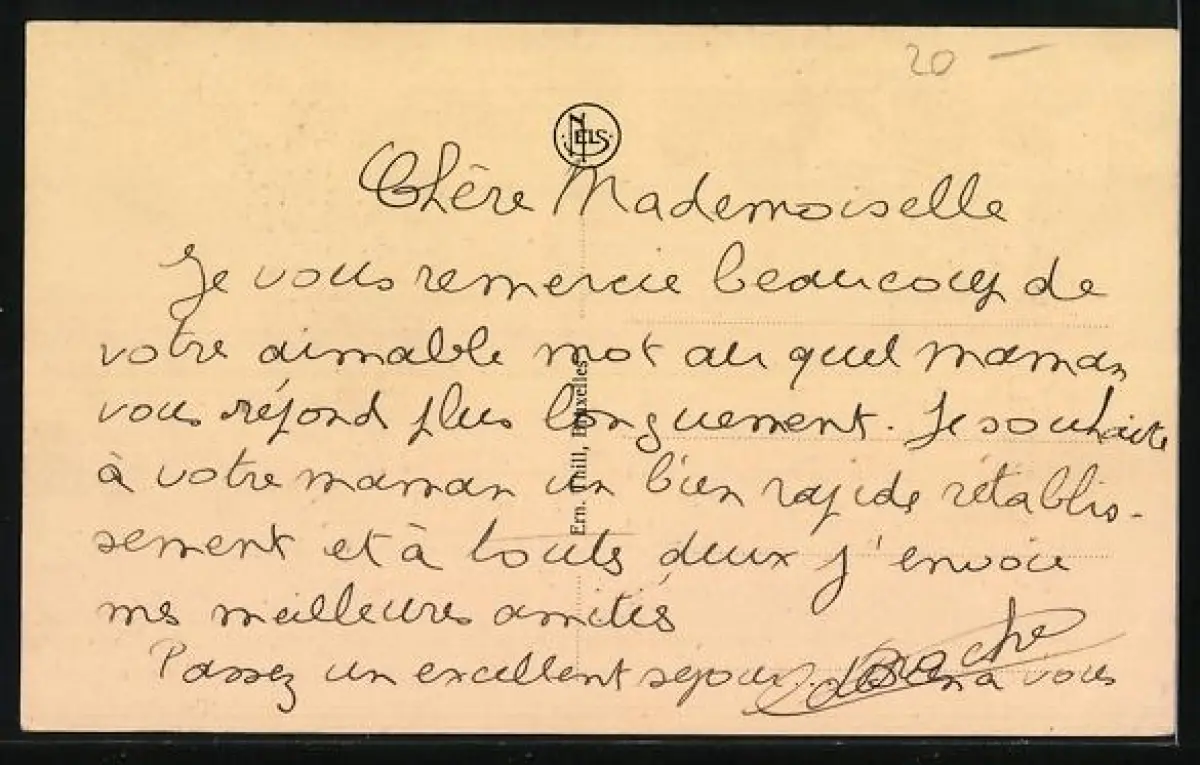 20 —
NELS
Chère Mademoiselle
Je vous remercie beaucoup de
votre aimable mot au quel maman
vous répond plus longuement. Je souhaite
à votre maman un bien rapide rétablis-
sement et à touts deux j'envoie
mes meilleures amitiés
Passez un excellent séjour. à vous
Ern. Thill, Bruxelles